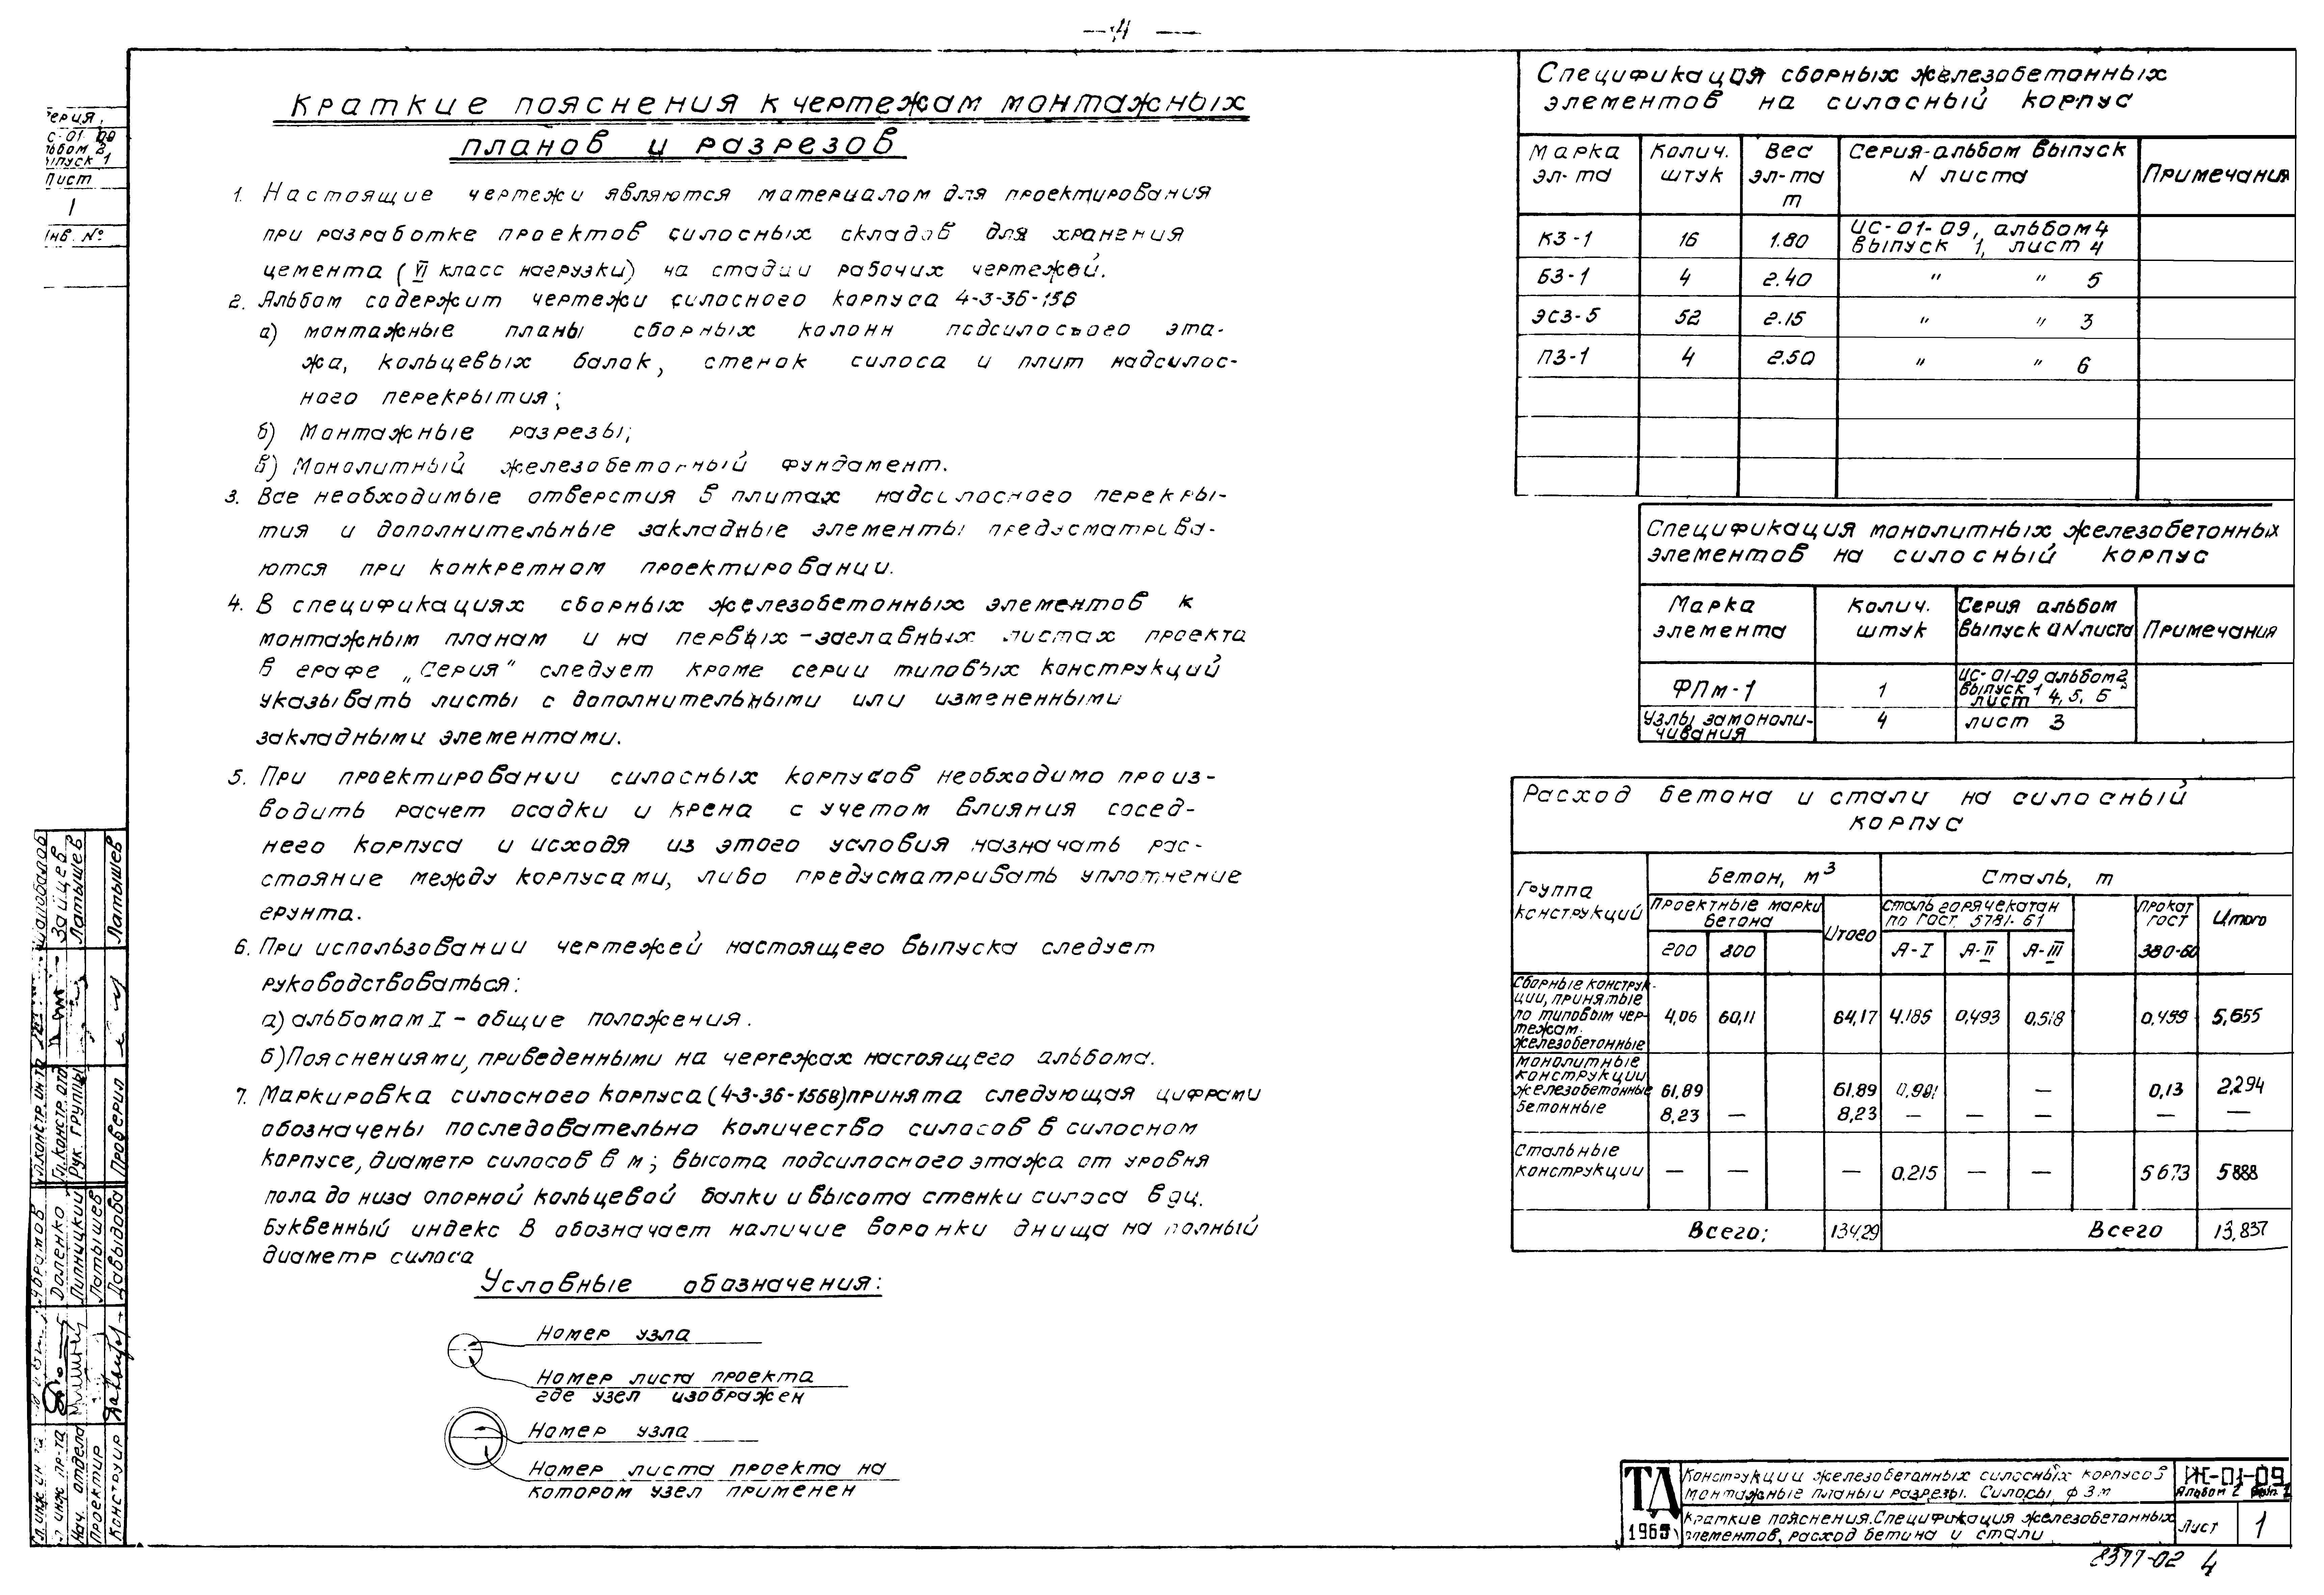 — 4 —
Краткие пояснения к чертежам монтажных
планов и разрезов
1. Настоящие чертежи являются материалом для проектирования
при разработке проектов силосных складов для хранения
цемента (VI класс нагрузки) на стадии рабочих чертежей.
2. Альбом содержит чертежи силосного корпуса 4-3-36-156
а) монтажные планы сборных колонн подсилосного эта-
жа, кольцевых балок, стенок силоса и плит надсилос-
ного перекрытия;
б) Монтажные разрезы;
в) Монолитный железобетонный фундамент.
3. Все необходимые отверстия в плитах надсилосного перекры-
тия и дополнительные закладные элементы предусматрива-
ются при конкретном проектировании.
4. В спецификациях сборных железобетонных элементов к
монтажным планам и на первых-заглавных листах проекта
в графе „Серия" следует кроме серии типовых конструкций
указывать листы с дополнительными или измененными
закладными элементами.
5. При проектировании силосных корпусов необходимо произ-
водить расчет осадки и крена с учетом влияния сосед-
него корпуса и исходя из этого условия назначать рас-
стояние между корпусами, либо предусматривать уплотнение
грунта.
6. При использовании чертежей настоящего выпуска следует
руководствоваться:
а) альбомом I – общие положения.
б) Пояснениями, приведенными на чертежах настоящего альбома.
7. Маркировка силосного корпуса (4-3-36-156В) принята следующая цифрами
обозначены последовательно количество силосов в силосном
корпусе, диаметр силосов в м; высота подсилосного этажа от уровня
пола до низа опорной кольцевой балки и высота стенки силоса в дц.
Буквенный индекс В обозначает наличие воронки днища на полный
диаметр силоса
Условные обозначения:
Номер узла
Номер листа проекта
где узел изображен
Номер узла
Номер листа проекта на
котором узел применен
Спецификация сборных железобетонных
элементов на силосный корпус
Марка эл-та Колич. штук Вес эл-та т Серия-альбом выпуск N листа Примечания
КЗ-1 16 1.80 ИС-01-09, альбом 4 выпуск 1, лист 4
БЗ-1 4 2.40 " " 5
ЭСЗ-5 52 2.15 " " 3
ПЗ-1 4 2.50 " " 6
Спецификация монолитных железобетонных
элементов на силосный корпус
Марка элемента Колич. штук Серия альбом выпуск и N листа Примечания
ФПм-1 1 ИС-01-09 альбом 2, выпуск 1 лист 4, 5, 6
Узлы замоноли-чивания 4 лист 3
Расход бетона и стали на силосный
корпус
Группа конструкций Бетон, м³ Сталь, т
Проектные марки бетона Итого Сталь горячекатан по ГОСТ 5781-61 Прокат ГОСТ 380-60 Итого
200 300 А-I А-II А-III
Сборные конструк-ции, принятые по типовым чер-тежам. железобетонные 4,06 60,11 64,17 4.185 0,493 0,518 0,459 5,655
Монолитные конструкции железобетонные 61.89 61.89 — 0,13 2,294
бетонные 8,23 — 8,23 — — — — —
Стальные конструкции — — — 0.215 — — 5673 5888
Всего: 134,29 Всего 13,837
ТД
Конструкции железобетонных силосных корпусов
Монтажные планы и разрезы. Силосы ф 3м
Краткие пояснения. Спецификация железобетонных
элементов, расход бетона и стали
ИС-01-09
Альбом 2
Лист 1
8377-02 4
Лист
1
Инв. №
Зайцев
Латышев
Латышев
Гл. констр. отд
Рук. группы
Проверил
Доленко
Липницкий
Латышев
Давыдова
Нач. отдела
Проектир
Конструир